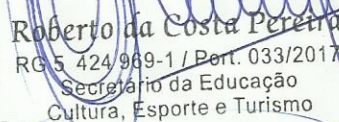 Roberto da Costa Pereira
RG 5 424 969-1 / Port. 033/2017
Secretário da Educação
Cultura, Esporte e Turismo